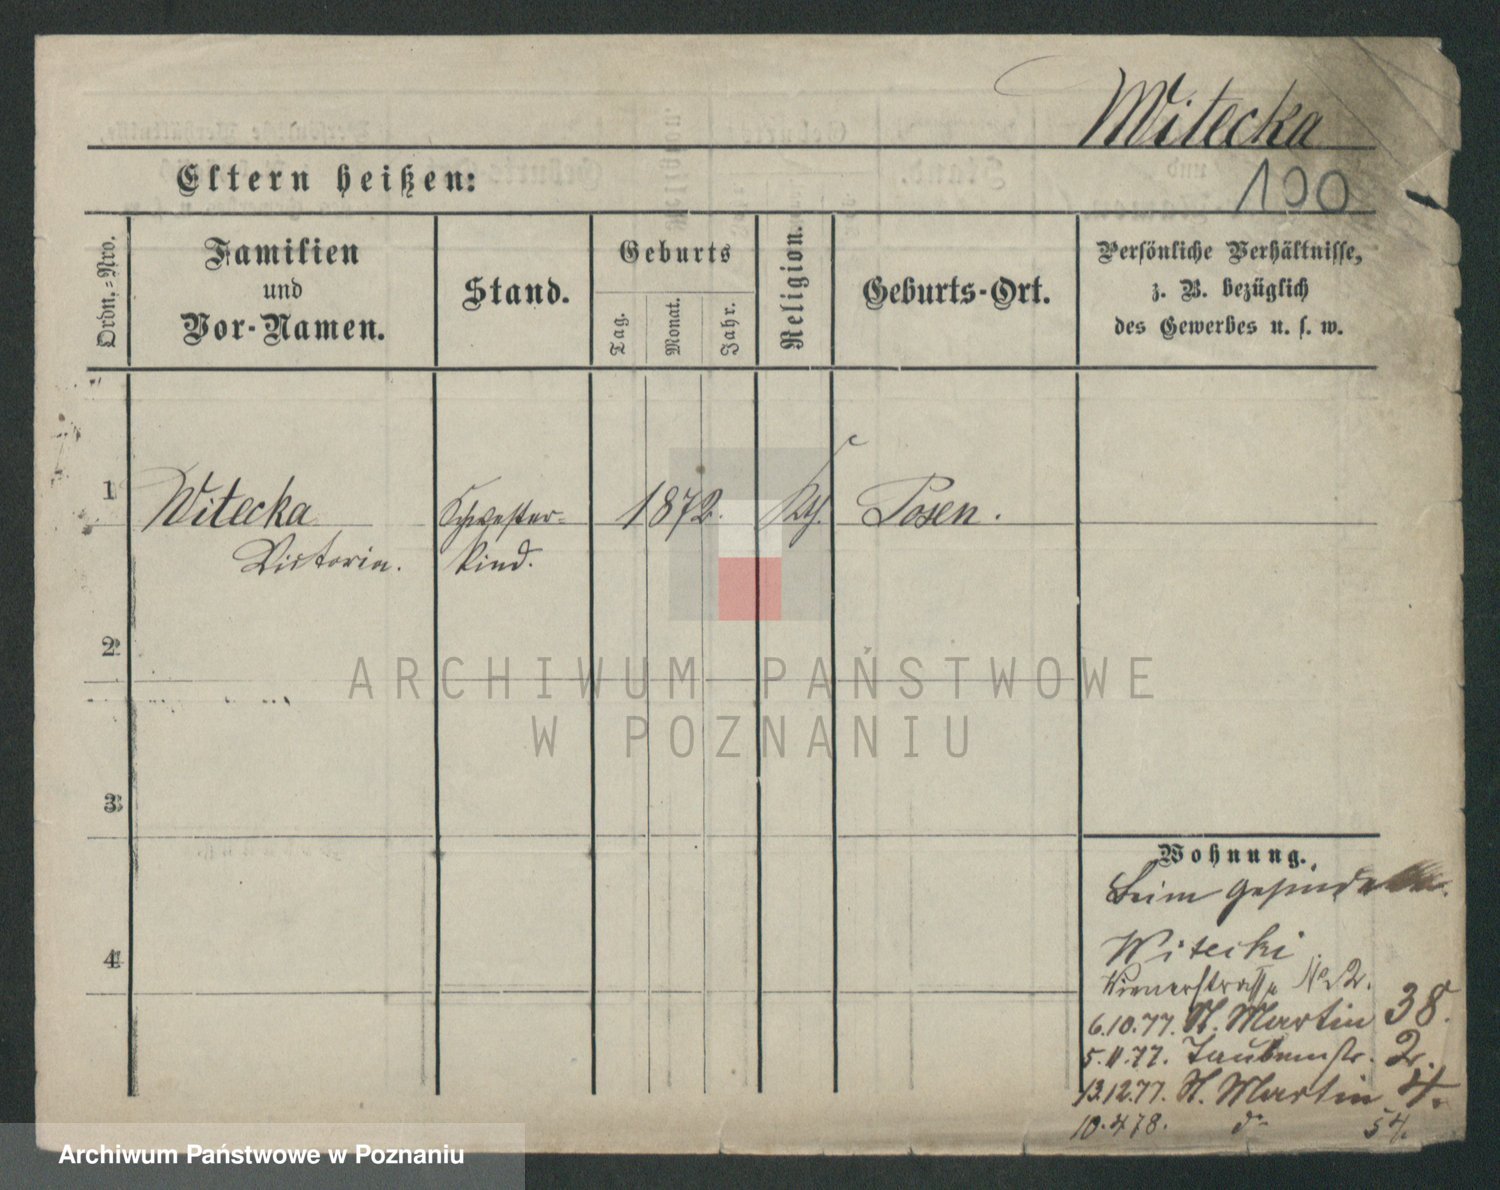 Witecka
Eltern heißen:
100
Ordn.-Nro.
Familien
und
Vor-Namen.
Stand.
Geburts
Tag.
Monat.
Jahr.
Religion.
Geburts-Ort.
Persönliche Verhältnisse,
z. B. bezüglich
des Gewerbes u. s. w.
1
Witecka
Victoria.
Schwester-
kind.
1872.
Kth.
Posen.
2
3
4
Wohnung.
Beim Gesinde
Witecki
Wienerstrasse No 2.
6.10.77. St. Martin 38.
5.11.77. Taubenstr. 2.
13.12.77. St. Martin 4.
10.4.78. do 54.
ARCHIWUM PAŃSTWOWE
W POZNANIU
Archiwum Państwowe w Poznaniu